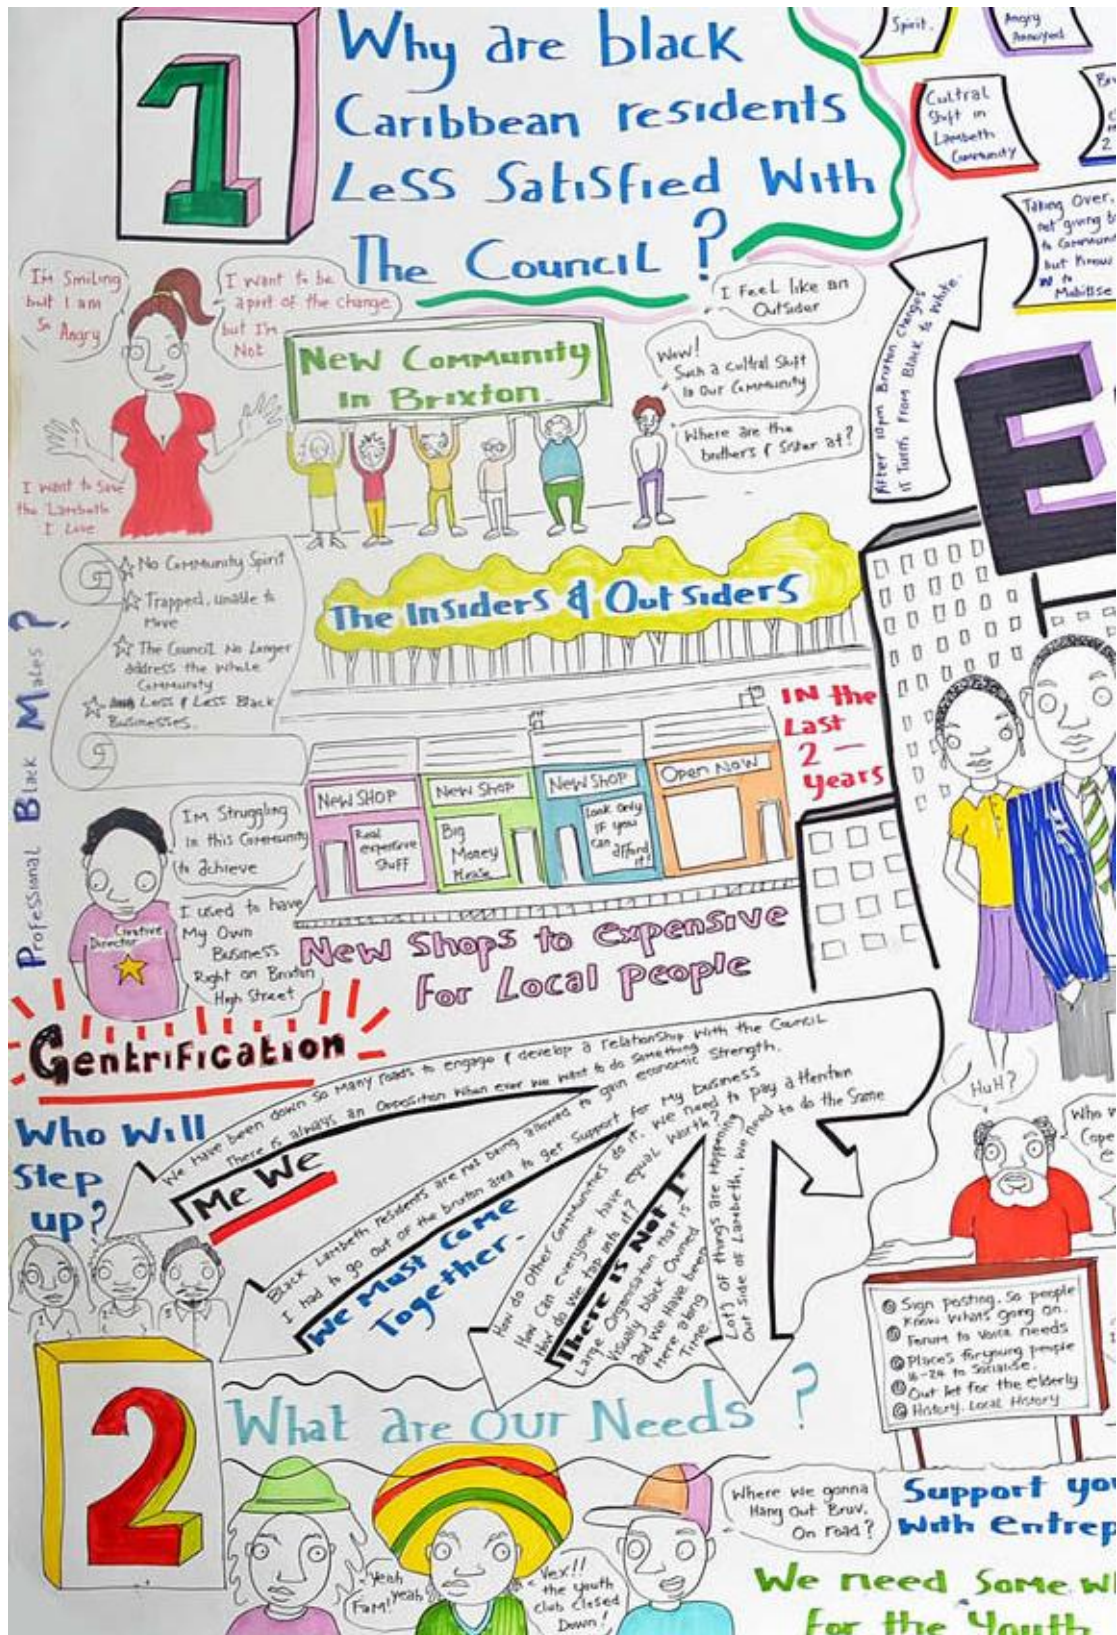 1
Why are black
Caribbean residents
Less Satisfied With
The Council?
Spirit.
Angry
Annoyed
Cultral
Shift in
Lambeth
Community
Taking Over,
not giving b
to Commun
but Know
to
Mobilise
I'm Smiling
but I am
So Angry
I want to be
apart of the change
but I'm
Not
I want to Save
the Lambeth
I Love
New Community
In Brixton.
I Feel like an
Outsider
Wow!
Such a cultral Shift
In Our Community
Where are the
brothers & Sister at?
After 10pm Brixton Changes
IT Turns From Black to White.
E
No Community Spirit
Trapped, unable to
Move
The Council No Longer
address the Whole
Community
Less & Less Black
Businesses.
Professional Black Males?
The Insiders & Outsiders
IN the
Last
2 -
years
New SHOP
Real
expensive
Stuff
New Shop
Big
Money
Please
New Shop
Look Only
IF you
can
afford
it!
Open Now
I'm Struggling
in this Community
to achieve
I used to have
My Own
Business
Right on Brixton
High Street
Creative
Director
New Shops to expensive
For Local people
Gentrification
We have been down so many roads to engage & develop a relationship With the Council
There is always an Opposition When ever we want to do Something
Me We
Black Lambeth residents are not being allowed to gain economic Strength.
I had to go out of the brixton area to get Support for My business
We Must Come
Together.
How do Other Communities do it, we need to pay attention
How Can everyone have equal Worth?
How do We tap into it?
There is Not 1
Large Organisation that is
Visually black Owned
and We Have been
Here along
Time.
Lots of things are Happening
Out Side of Lambeth, We need to do the Same
Who Will
Step
up?
HuH?
Who
Cope
Sign posting, So people
Know Whats going on.
Forum to Voice needs
Places for young people
16-24 to Socialise.
Out let for the elderly
History, Local History
2
What are Our Needs?
Yeah
yeah
Fam!
Vex!!
the youth
club Closed
Down!
Where we gonna
Hang Out Bruv,
On road?
Support you
With entrep
We need Some wh
For the Youth